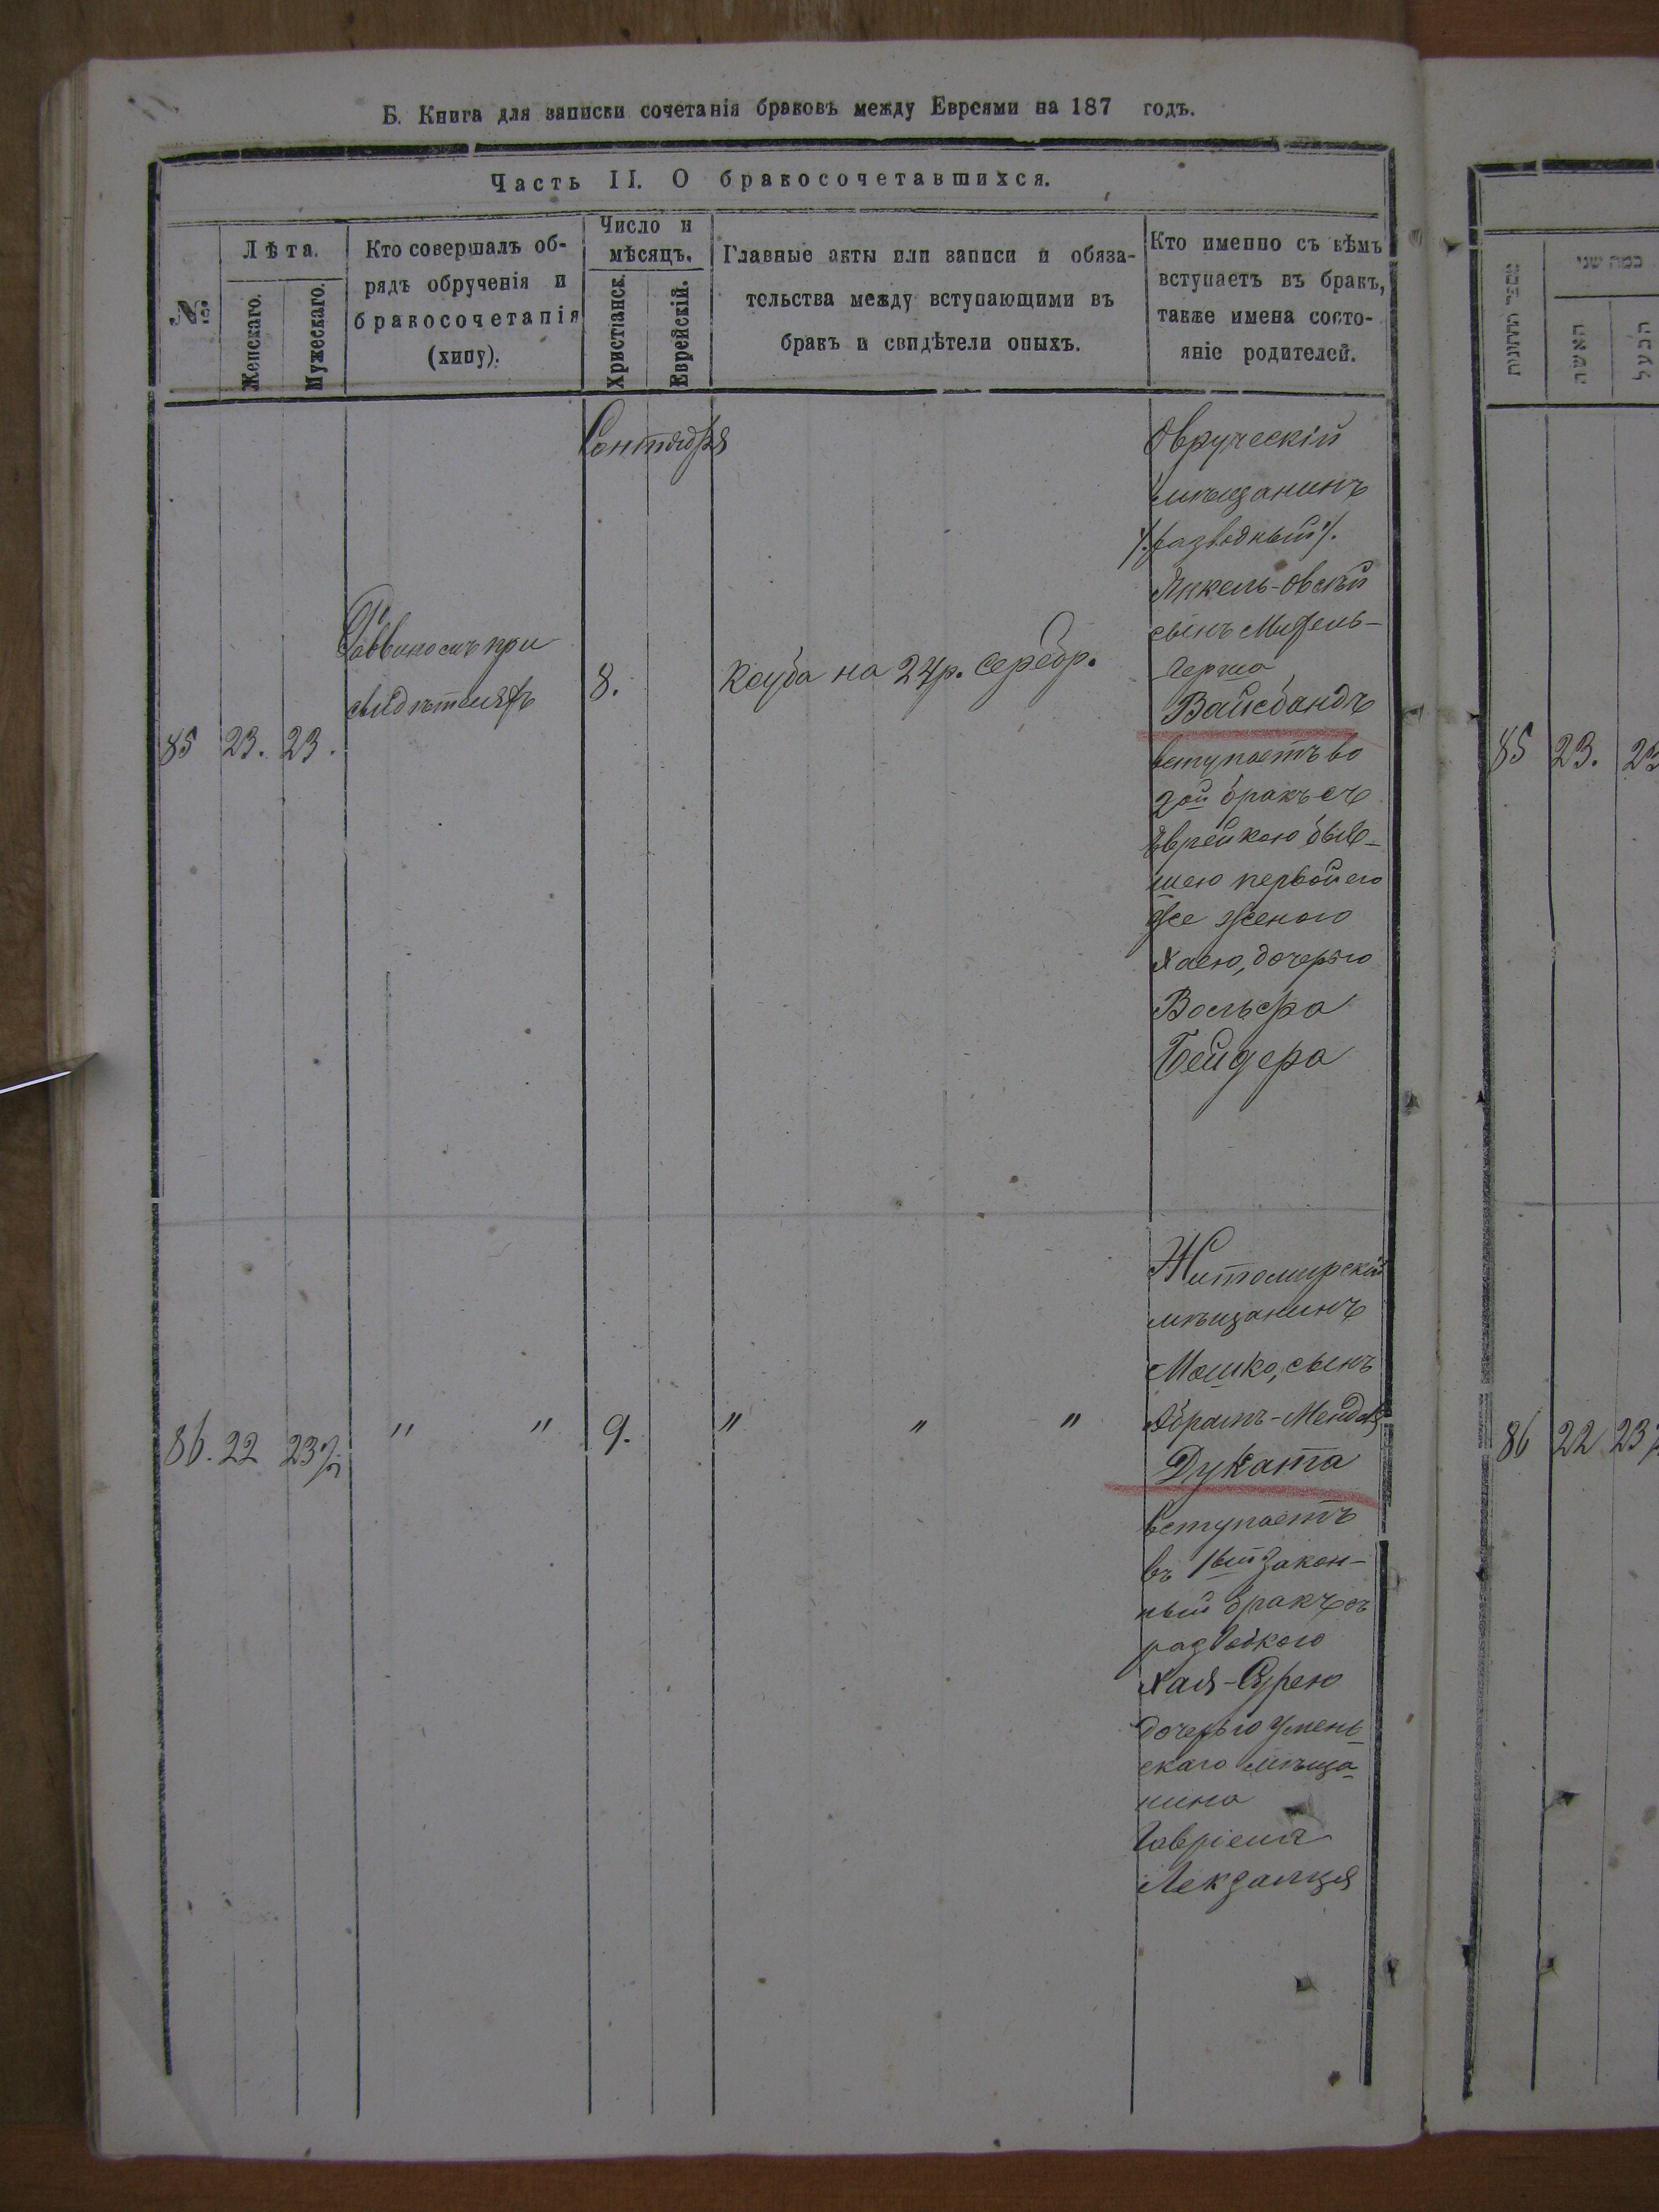 Б. Книга для записки сочетанія браковъ между Евреями на 187 годъ.
Часть II. О бракосочетавшихся.
№
Лѣта.
Женскаго.
Мужескаго.
Кто совершалъ об-
рядъ обрученія и
бракосочетанія
(хипу).
Число и
мѣсяцъ.
Христіанск.
Еврейскій.
Главные акты или записи и обяза-
тельства между вступающими въ
бракъ и свидѣтели оныхъ.
Кто именно съ кѣмъ
вступаетъ въ бракъ,
также имена состо-
яніе родителей.
Сентября
85
23.
23.
Раввиномъ при
свидѣтеляхъ
8.
Ксуба на 24р. серебр.
Овруческій
мѣщанинъ
/.разводный/.
Янкель-Овсѣй
сынъ
Герша
Вайсбандъ
вступаетъ во
2ой бракъ съ
Еврейкою быв-
шею первой его
же женою
Хаею, дочерью
Вольфа
Бейдера
86.
22
23½
" "
9.
" " "
Житомирскій
мѣщанинъ
Мошко, сынъ
Абрамъ-Менделя
Дуката
вступаетъ
въ 1ый закон-
ный бракъ съ
разводкою
Хая-Сурею
дочерью Умень-
скаго мѣща-
нина
Гавріеля
מספר החתונות
כמה שני
האשה
הבעל
85
23.
23
86
22
23